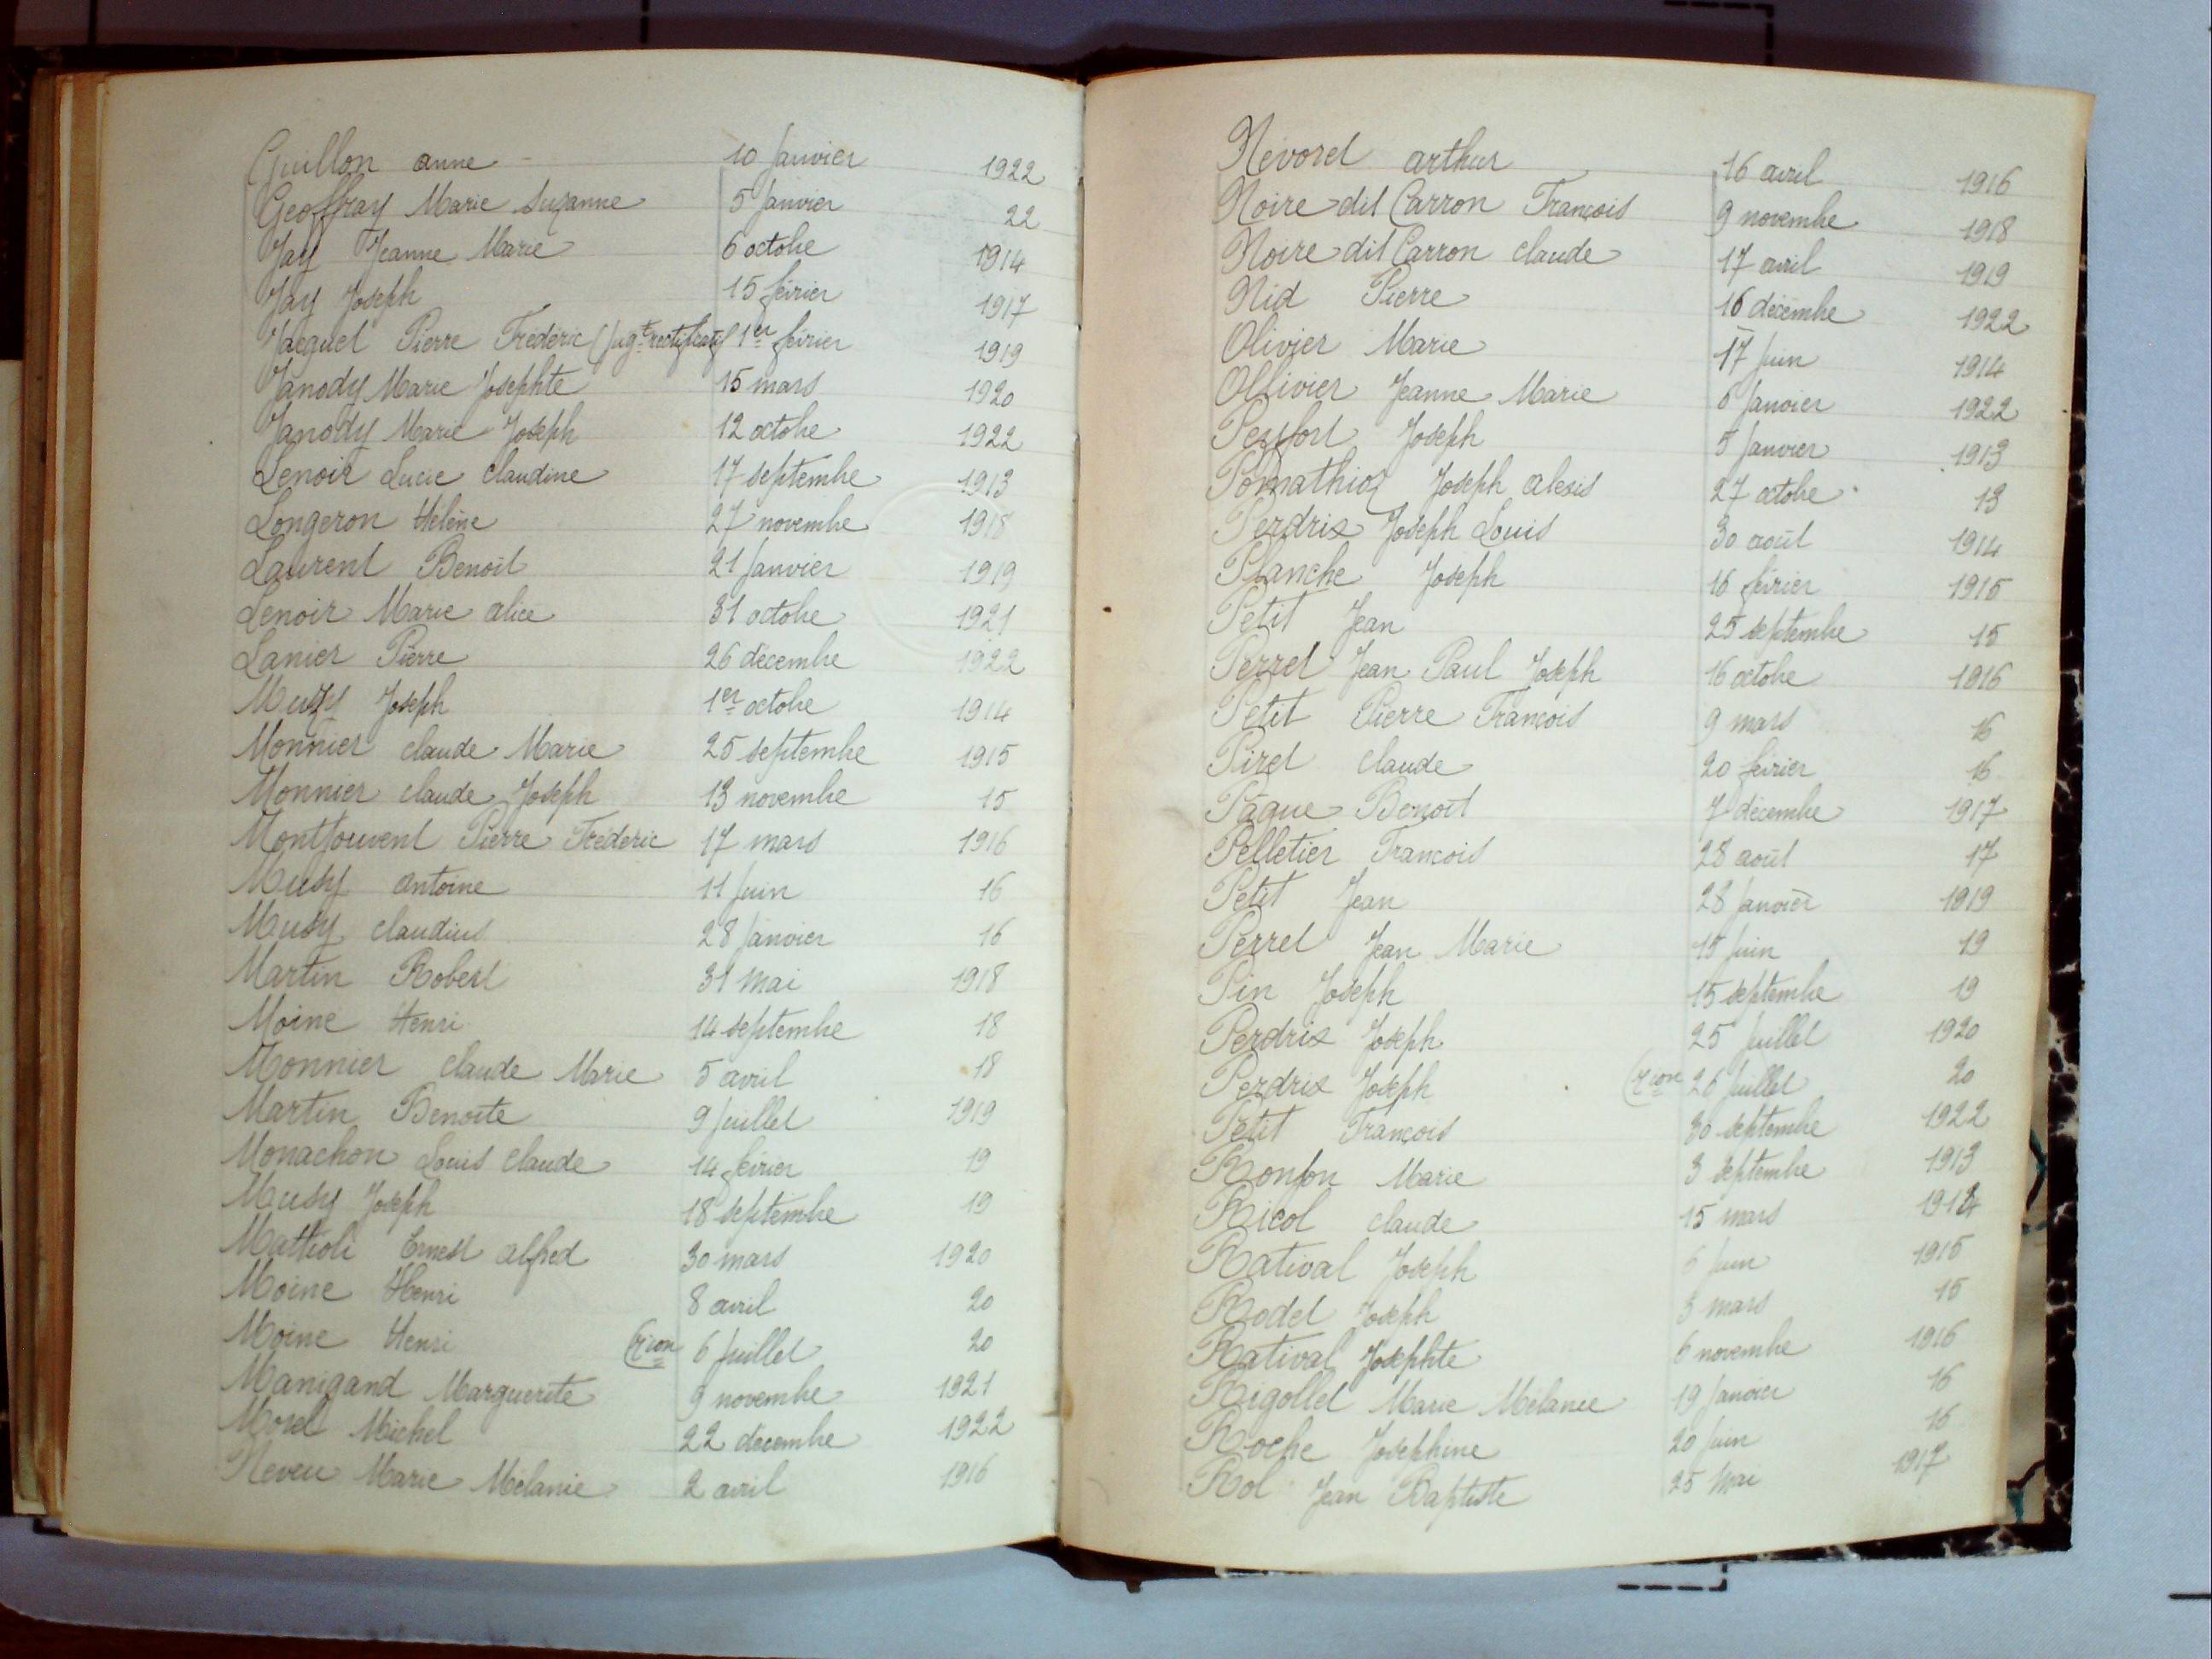 Guillon anne 10 Janvier 1922
Geoffray Marie Suzanne 5 Janvier 22
Jay Jeanne Marie 6 octobre 1914
Jay Joseph 15 février 1917
Jacquet Pierre Frédéric (Jugt rectificatif) 1er février 1919
Janody Marie Josephte 15 mars 1920
Janody Marie Joseph 12 octobre 1922
Lenoir Lucie Claudine 17 septembre 1913
Longeron Hélène 27 novembre 1918
Laurent Benoit 21 Janvier 1919
Lenoir Marie alice 31 octobre 1921
Lanier Pierre 26 décembre 1922
Muzy Joseph 1er octobre 1914
Monnier claude Marie 25 septembre 1915
Monnier claude Joseph 13 novembre 15
Montjouvent Pierre Frédéric 17 mars 1916
Musy antoine 11 Juin 16
Musy claudius 28 Janvier 16
Martin Robert 31 Mai 1918
Moine Henri 14 septembre 18
Monnier claude Marie 5 avril 18
Martin Benoite 9 Juillet 1919
Monachon Louis claude 14 février 19
Musy Joseph 18 septembre 19
Mattioli Ernest alfred 30 mars 1920
Moine Henri 8 avril 20
Moine Henri 6 Juillet 20
Manigand Marguerite 9 novembre 1921
Morel Michel 22 décembre 1922
Neveu Marie Mélanie 2 avril 1916
Nevoret arthur 16 avril 1916
Noire dit Carron François 9 novembre 1918
Noire dit Carron claude 17 avril 1919
Nid Pierre 16 décembre 1922
Olivier Marie 17 Juin 1914
Ollivier Jeanne Marie 6 Janvier 1922
Joseph 5 Janvier 1913
Pomathioz Joseph alexis 27 octobre 13
Perdrix Joseph Louis 30 août 1914
Planche Joseph 16 février 1915
Petit Jean 25 septembre 15
Perret Jean Paul Joseph 16 octobre 1916
Petit Pierre François 9 mars 16
Piret claude 20 février 16
Pâque Benoît 7 décembre 1917
Pelletier François 28 août 17
Petit Jean 28 Janvier 1919
Perret Jean Marie 15 Juin 19
Pin Joseph 15 septembre 19
Perdrix Joseph 25 Juillet 1920
Perdrix Joseph 26 Juillet 20
Petit François 30 septembre 1922
Ronjon Marie 3 septembre 1913
Ricol claude 15 mars 1914
Rativat Joseph 6 Juin 1915
Rodet Joseph 3 mars 15
Rativat Josephte 6 novembre 1916
Rigollet Marie Mélanie 19 Janvier 16
Roche Josephine 20 Juin 16
Rol Jean Baptiste 25 Mai 1917